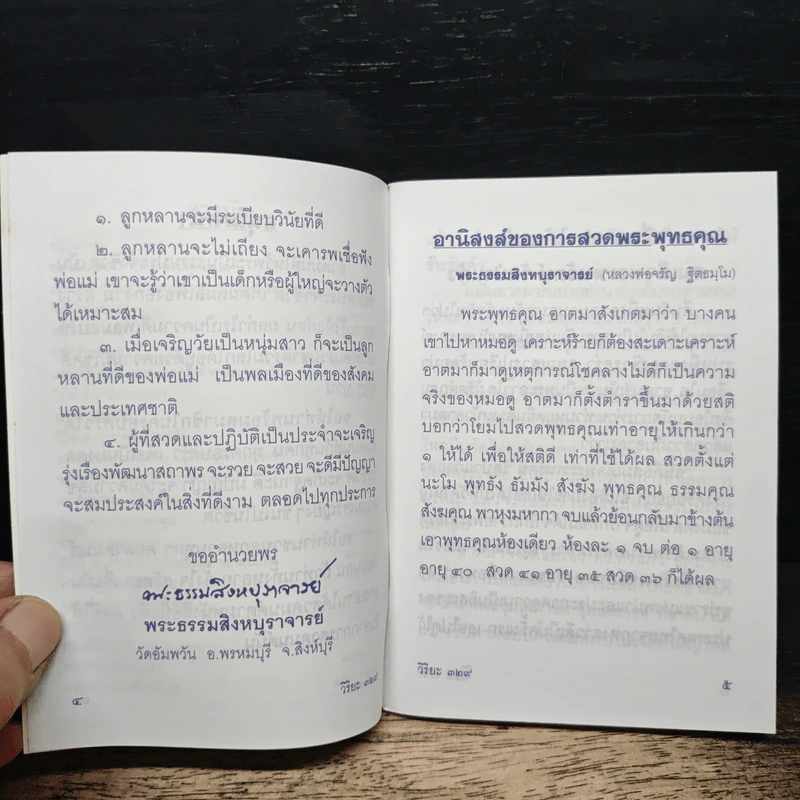 ๑. ลูกหลานจะมีระเบียบวินัยที่ดี
๒. ลูกหลานจะไม่เถียง จะเคารพเชื่อฟัง
พ่อแม่ เขาจะรู้ว่าเขาเป็นเด็กหรือผู้ใหญ่จะวางตัว
ได้เหมาะสม
๓. เมื่อเจริญวัยเป็นหนุ่มสาว ก็จะเป็นลูก
หลานที่ดีของพ่อแม่ เป็นพลเมืองที่ดีของสังคม
และประเทศชาติ
๔. ผู้ที่สวดและปฏิบัติเป็นประจำจะเจริญ
รุ่งเรืองพัฒนาสถาพร จะรวย จะสวย จะดีมีปัญญา
จะสมประสงค์ในสิ่งที่ดีงาม ตลอดไปทุกประการ
ขออำนวยพร
พระธรรมสิงหบุราจารย์
พระธรรมสิงหบุราจารย์
วัดอัมพวัน อ.พรหมบุรี จ.สิงห์บุรี
๔
วิริยะ ๓๒๙
อานิสงส์ของการสวดพระพุทธคุณ
พระธรรมสิงหบุราจารย์ (หลวงพ่อจรัญ ฐิตธมฺโม)
พระพุทธคุณ อาตมาสังเกตมาว่า บางคน
เขาไปหาหมอดู เคราะห์ร้ายก็ต้องสะเดาะเคราะห์
อาตมาก็มาดูเหตุการณ์โชคลางไม่ดีก็เป็นความ
จริงของหมอดู อาตมาก็ตั้งตำราขึ้นมาด้วยสติ
บอกว่าโยมไปสวดพุทธคุณเท่าอายุให้เกินกว่า
๑ ให้ได้ เพื่อให้สติดี เท่าที่ใช้ได้ผล สวดตั้งแต่
นะโม พุทธัง ธัมมัง สังฆัง พุทธคุณ ธรรมคุณ
สังฆคุณ พาหุงมหากา จบแล้วย้อนกลับมาข้างต้น
เอาพุทธคุณห้องเดียว ห้องละ ๑ จบ ต่อ ๑ อายุ
อายุ ๔๐ สวด ๔๑ อายุ ๓๕ สวด ๓๖ ก็ได้ผล
วิริยะ ๓๒๙
๕